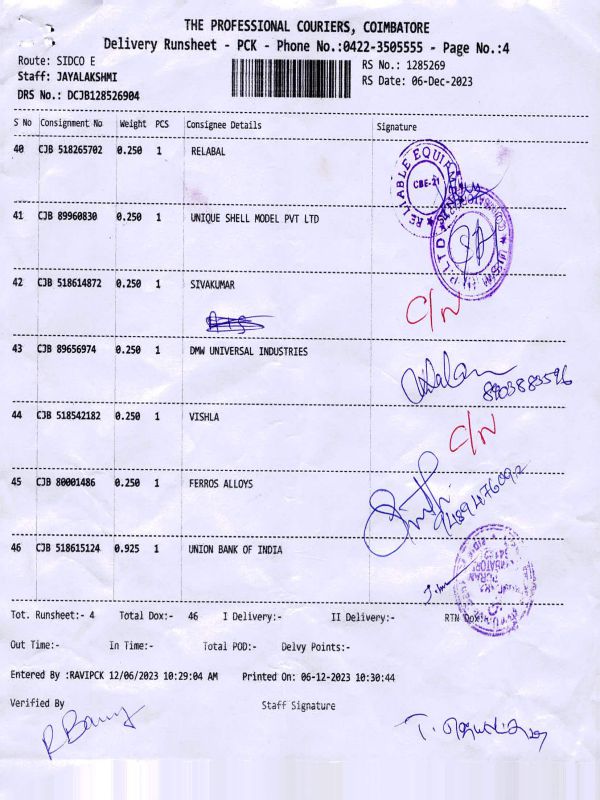 THE PROFESSIONAL COURIERS, COIMBATORE
Delivery Runsheet - PCK - Phone No.:0422-3505555 - Page No.:4
Route: SIDCO E RS No.: 1285269
Staff: JAYALAKSHMI RS Date: 06-Dec-2023
DRS No.: DCJB128526904
S No Consignment No Weight PCS Consignee Details Signature
40 CJB 518265702 0.250 1 RELABAL
RELIABLE EQUIPMENTS
CBE-21
41 CJB 89960830 0.250 1 UNIQUE SHELL MODEL PVT LTD
42 CJB 518614872 0.250 1 SIVAKUMAR
C/N
43 CJB 89656974 0.250 1 DMW UNIVERSAL INDUSTRIES
8903883596
44 CJB 518542182 0.250 1 VISHLA
C/N
45 CJB 80001486 0.250 1 FERROS ALLOYS
46 CJB 518615124 0.925 1 UNION BANK OF INDIA
Tot. Runsheet:- 4 Total Dox:- 46 I Delivery:- II Delivery:- RTN Dox:-
Out Time:- In Time:- Total POD:- Delvy Points:-
Entered By :RAVIPCK 12/06/2023 10:29:04 AM Printed On: 06-12-2023 10:30:44
Verified By Staff Signature